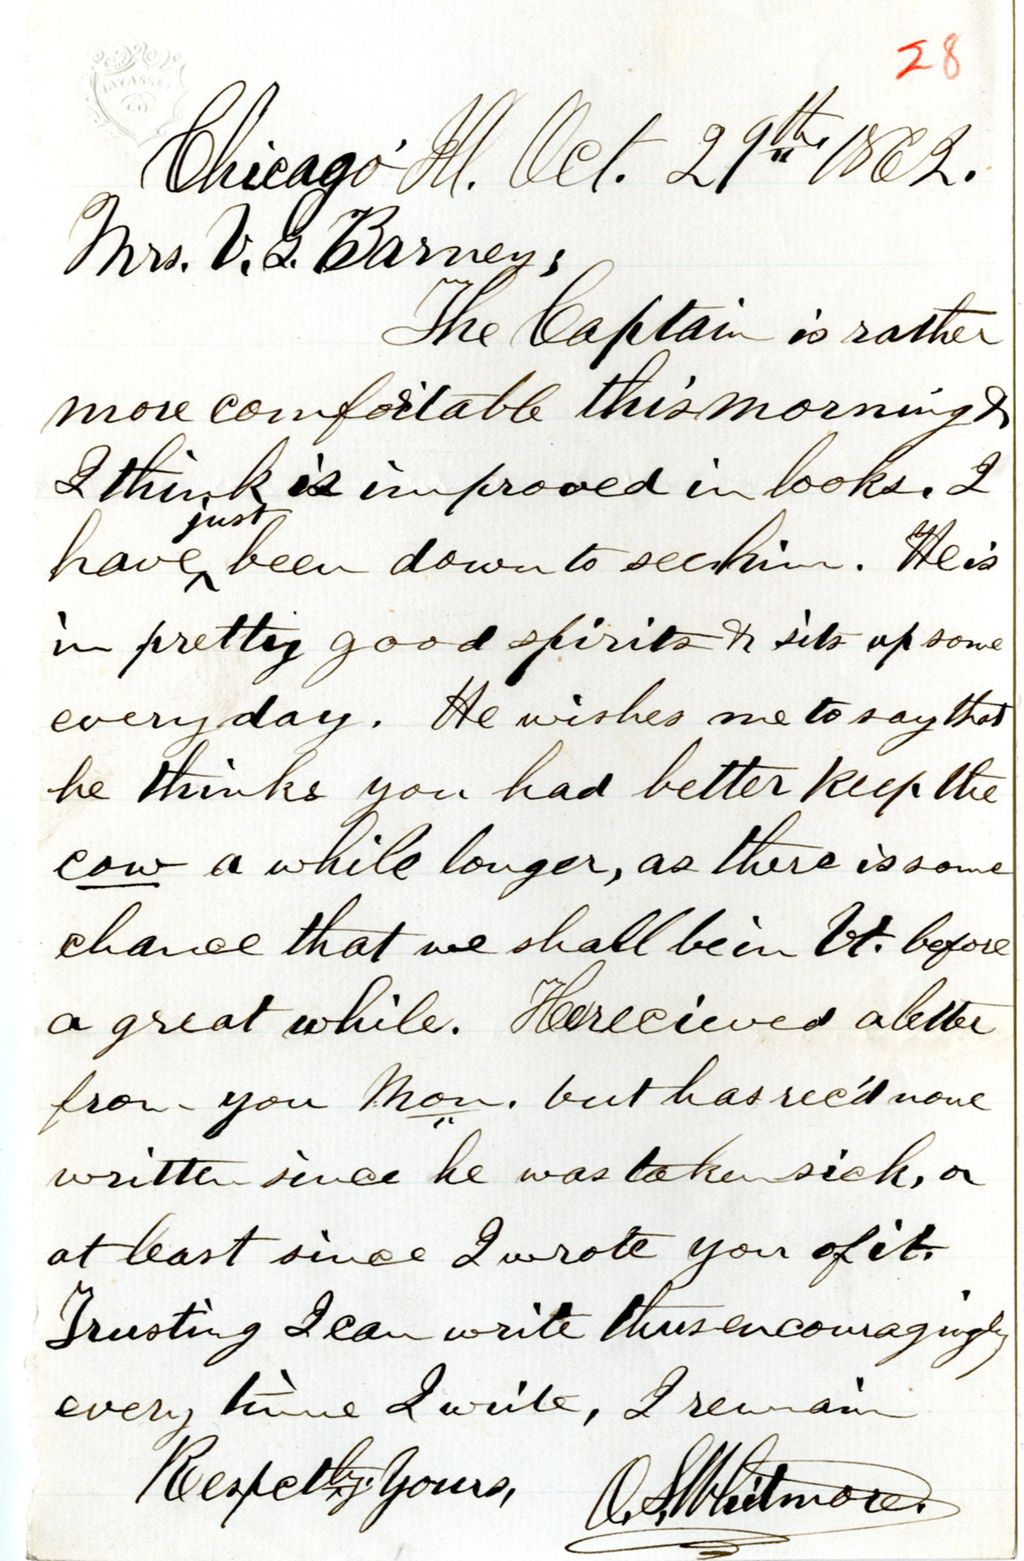 28
LAVASSEY
CO.
Chicago Ill. Oct. 29th. 1862.
Mrs. V. G. Barney,
The Captain is rather
more comfortable this morning &
I think is improved in looks. I
just
have ^ been down to see him. He is
in pretty good spirits & sits up some
every day. He wishes me to say that
he thinks you had better keep the
cow a while longer, as there is some
chance that we shall be in Vt. before
a great while. He recieved a letter
from you Mon. but has rec'd none
written since he was taken sick, or
at least since I wrote you of it.
Trusting I can write thus encouragingly
every time I write, I remain
Respectly. Yours,
O. S. Whitmore.